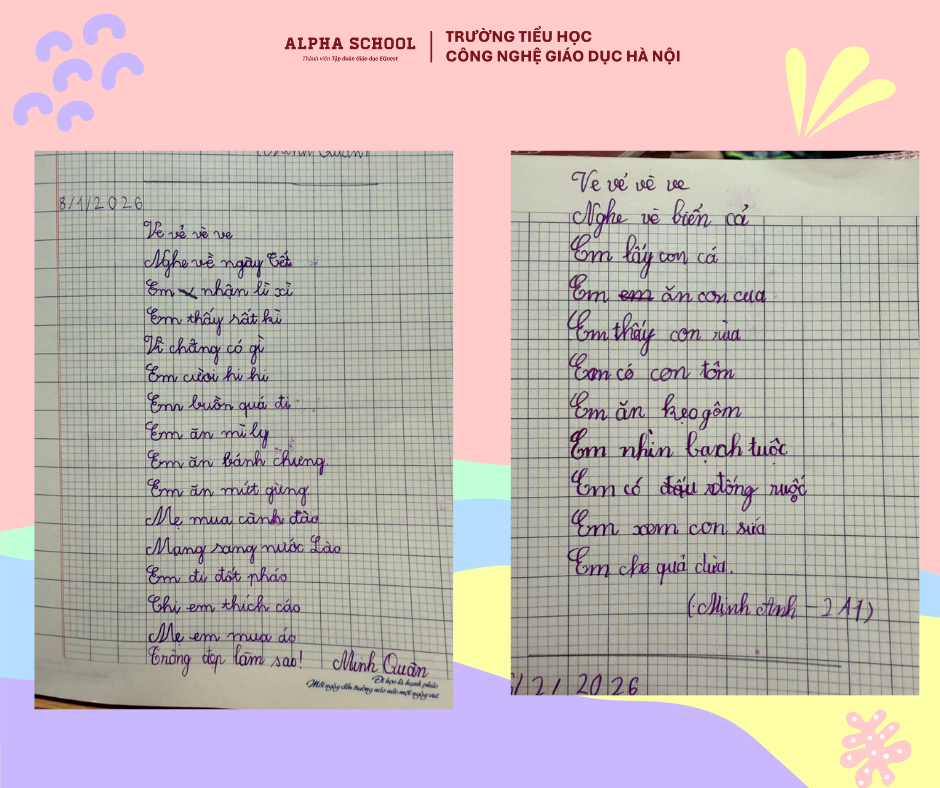 ALPHA SCHOOL
Thành viên Tập đoàn Giáo dục EQuest
TRƯỜNG TIỂU HỌC
CÔNG NGHỆ GIÁO DỤC HÀ NỘI
8/1/2026
Ve vẻ vè ve
Nghe vè ngày Tết
Em nhận lì xì
Em thấy rất kì
Vì chẳng có gì
Em cười hi hi
Em buồn quá đi
Em ăn mì ly
Em ăn bánh chưng
Em ăn mứt gừng
Mẹ mua cành đào
Mang sang nước Lào
Em đi đốt pháo
Chị em thích cáo
Mẹ em mua áo
Trông đẹp làm sao! Minh Quân
Đi học là hạnh phúc
Mỗi ngày đến trường náo nức một ngày vui
Ve vẻ vè ve
Nghe vè biển cả
Em lấy con cá
Em em ăn con cua
Em thấy con rùa
Em có con tôm
Em ăn kẹo gôm
Em nhìn bạch tuộc
Em có đống ruốc
Em xem con sứa
Em che quả dừa.
(Minh Anh - 2A1)
/2/ 2026